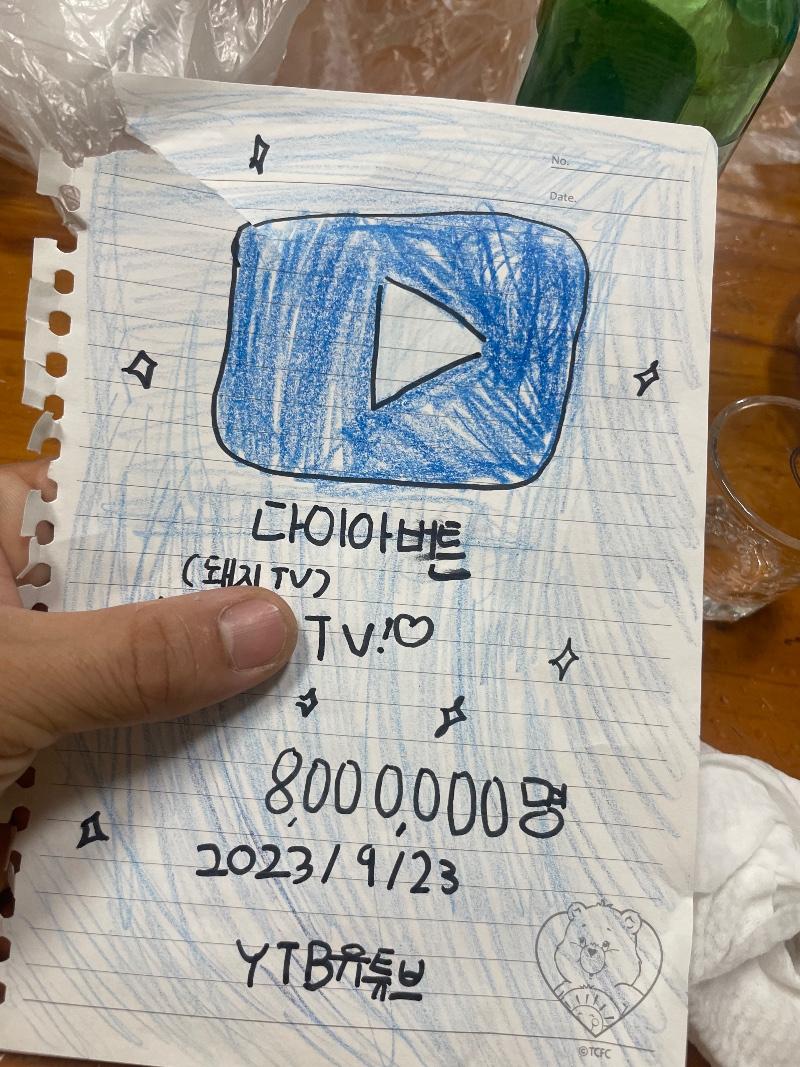 No.
Date.
다이아버튼
(돼지 TV)
TV!♡
8,000,000명
2023/9/23
YTB유튜브
©TCFC